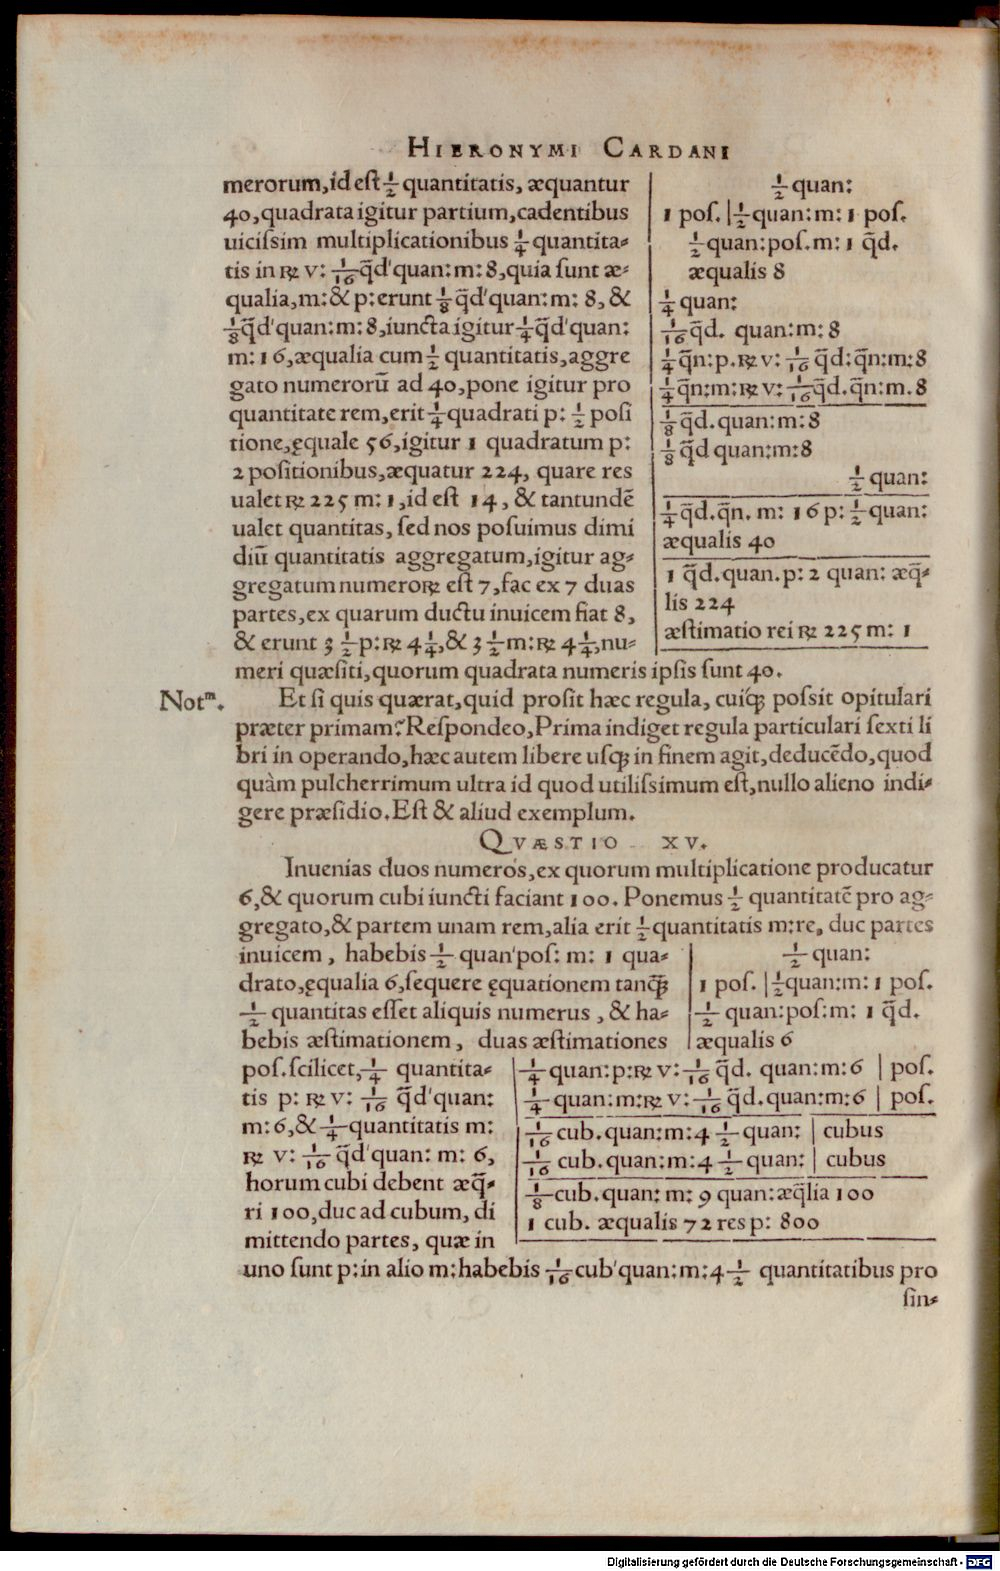 HIERONYMI CARDANI
merorum,id eſt 1/2 quantitatis, æquantur
40,quadrata igitur partium,cadentibus
uiciſsim multiplicationibus 1/4 quantita-
tis in ℞ v: 1/16 q̃d' quan: m: 8,quia ſunt æ-
qualia,m:& p:erunt 1/8 q̃d'quan:m: 8, &
1/8 q̃d'quan:m: 8,iuncta igitur 1/4 q̃d'quan:
m: 16,æqualia cum 1/2 quantitatis,aggre
gato numerorũ ad 40,pone igitur pro
quantitate rem,erit 1/4 quadrati p: 1/2 poſi
tione,ęquale 56,igitur 1 quadratum p:
2 poſitionibus,æquatur 224, quare res
ualet ℞ 225 m: 1,id eſt 14, & tantundẽ
ualet quantitas, ſed nos poſuimus dimi
diũ quantitatis aggregatum,igitur ag-
gregatum numero℞ eſt 7,fac ex 7 duas
partes,ex quarum ductu inuicem fiat 8,
& erunt 3 1/2 p:℞ 4 1/4,& 3 1/2 m:℞ 4 1/4,nu-
1/2 quan:
1 poſ. | 1/2 quan:m: 1 poſ.
1/2 quan:poſ.m: 1 q̃d.
æqualis 8
1/4 quan:
1/16 q̃d. quan:m: 8
1/4 q̃n:p.℞ v: 1/16 q̃d:q̃n:m:8
1/4 q̃n:m:℞ v: 1/16 q̃d.q̃n:m.8
1/8 q̃d.quan:m:8
1/8 q̃d quan:m:8
1/2 quan:
1/4 q̃d.q̃n. m: 16 p: 1/2 quan:
æqualis 40
1 q̃d.quan.p: 2 quan: æq̃-
lis 224
æſtimatio rei ℞ 225 m: 1
meri quæſiti,quorum quadrata numeris ipſis ſunt 40.
Notᵐ.
Et ſi quis quærat,quid proſit hæc regula, cuiq̃ poſsit opitulari
præter primam? Reſpondeo,Prima indiget regula particulari ſexti li
bri in operando,hæc autem libere uſq̃ in finem agit,deducẽdo,quod
quàm pulcherrimum ultra id quod utiliſsimum eſt,nullo alieno indi-
gere præſidio.Eſt & aliud exemplum.
QVÆSTIO XV.
Inuenias duos numeros,ex quorum multiplicatione producatur
6,& quorum cubi iuncti faciant 100. Ponemus 1/2 quantitatẽ pro ag-
gregato,& partem unam rem,alia erit 1/2 quantitatis m:re, duc partes
inuicem, habebis 1/2 quan'poſ: m: 1 qua-
drato,ęqualia 6,ſequere ęquationem tanq̃
1/2 quantitas eſſet aliquis numerus, & ha-
bebis æſtimationem, duas æſtimationes
1/2 quan:
1 poſ. | 1/2 quan:m: 1 poſ.
1/2 quan:poſ:m: 1 q̃d.
æqualis 6
poſ.ſcilicet, 1/4 quantita-
tis p: ℞ v: 1/16 q̃d'quan:
m: 6,& 1/4 quantitatis m:
℞ v: 1/16 q̃d'quan: m: 6,
horum cubi debent æq̃-
ri 100,duc ad cubum, di
mittendo partes, quæ in
1/4 quan:p:℞ v: 1/16 q̃d. quan:m:6 | poſ.
1/4 quan:m:℞ v: 1/16 q̃d.quan:m:6 | poſ.
1/16 cub.quan:m:4 1/2 quan: | cubus
1/16 cub.quan:m:4 1/2 quan: | cubus
1/8 cub.quan: m: 9 quan:æq̃lia 100
1 cub. æqualis 72 res p: 800
uno ſunt p:in alio m:habebis 1/16 cub'quan:m:4 1/2 quantitatibus pro
ſin-
Digitalisierung gefördert durch die Deutsche Forschungsgemeinschaft - DFG